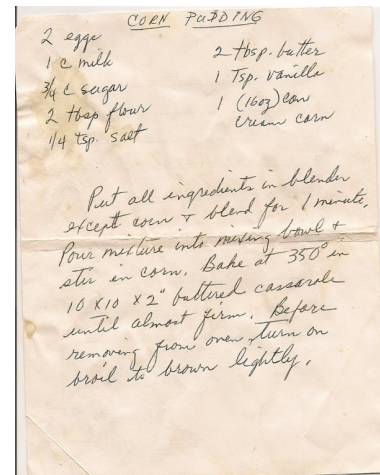 CORN PUDDING
2 eggs
1 c milk
3/4 c sugar
2 tbsp flour
1/4 tsp. salt
2 tbsp. butter
1 Tsp. vanilla
1 (16oz) can
cream corn
Put all ingredients in blender
except corn + blend for 1 minute.
Pour mixture into mixing bowl +
stir in corn. Bake at 350° in
10 x 10 x 2" buttered cassarole
until almost firm. Before
removing from oven, turn on
broil to brown lightly.